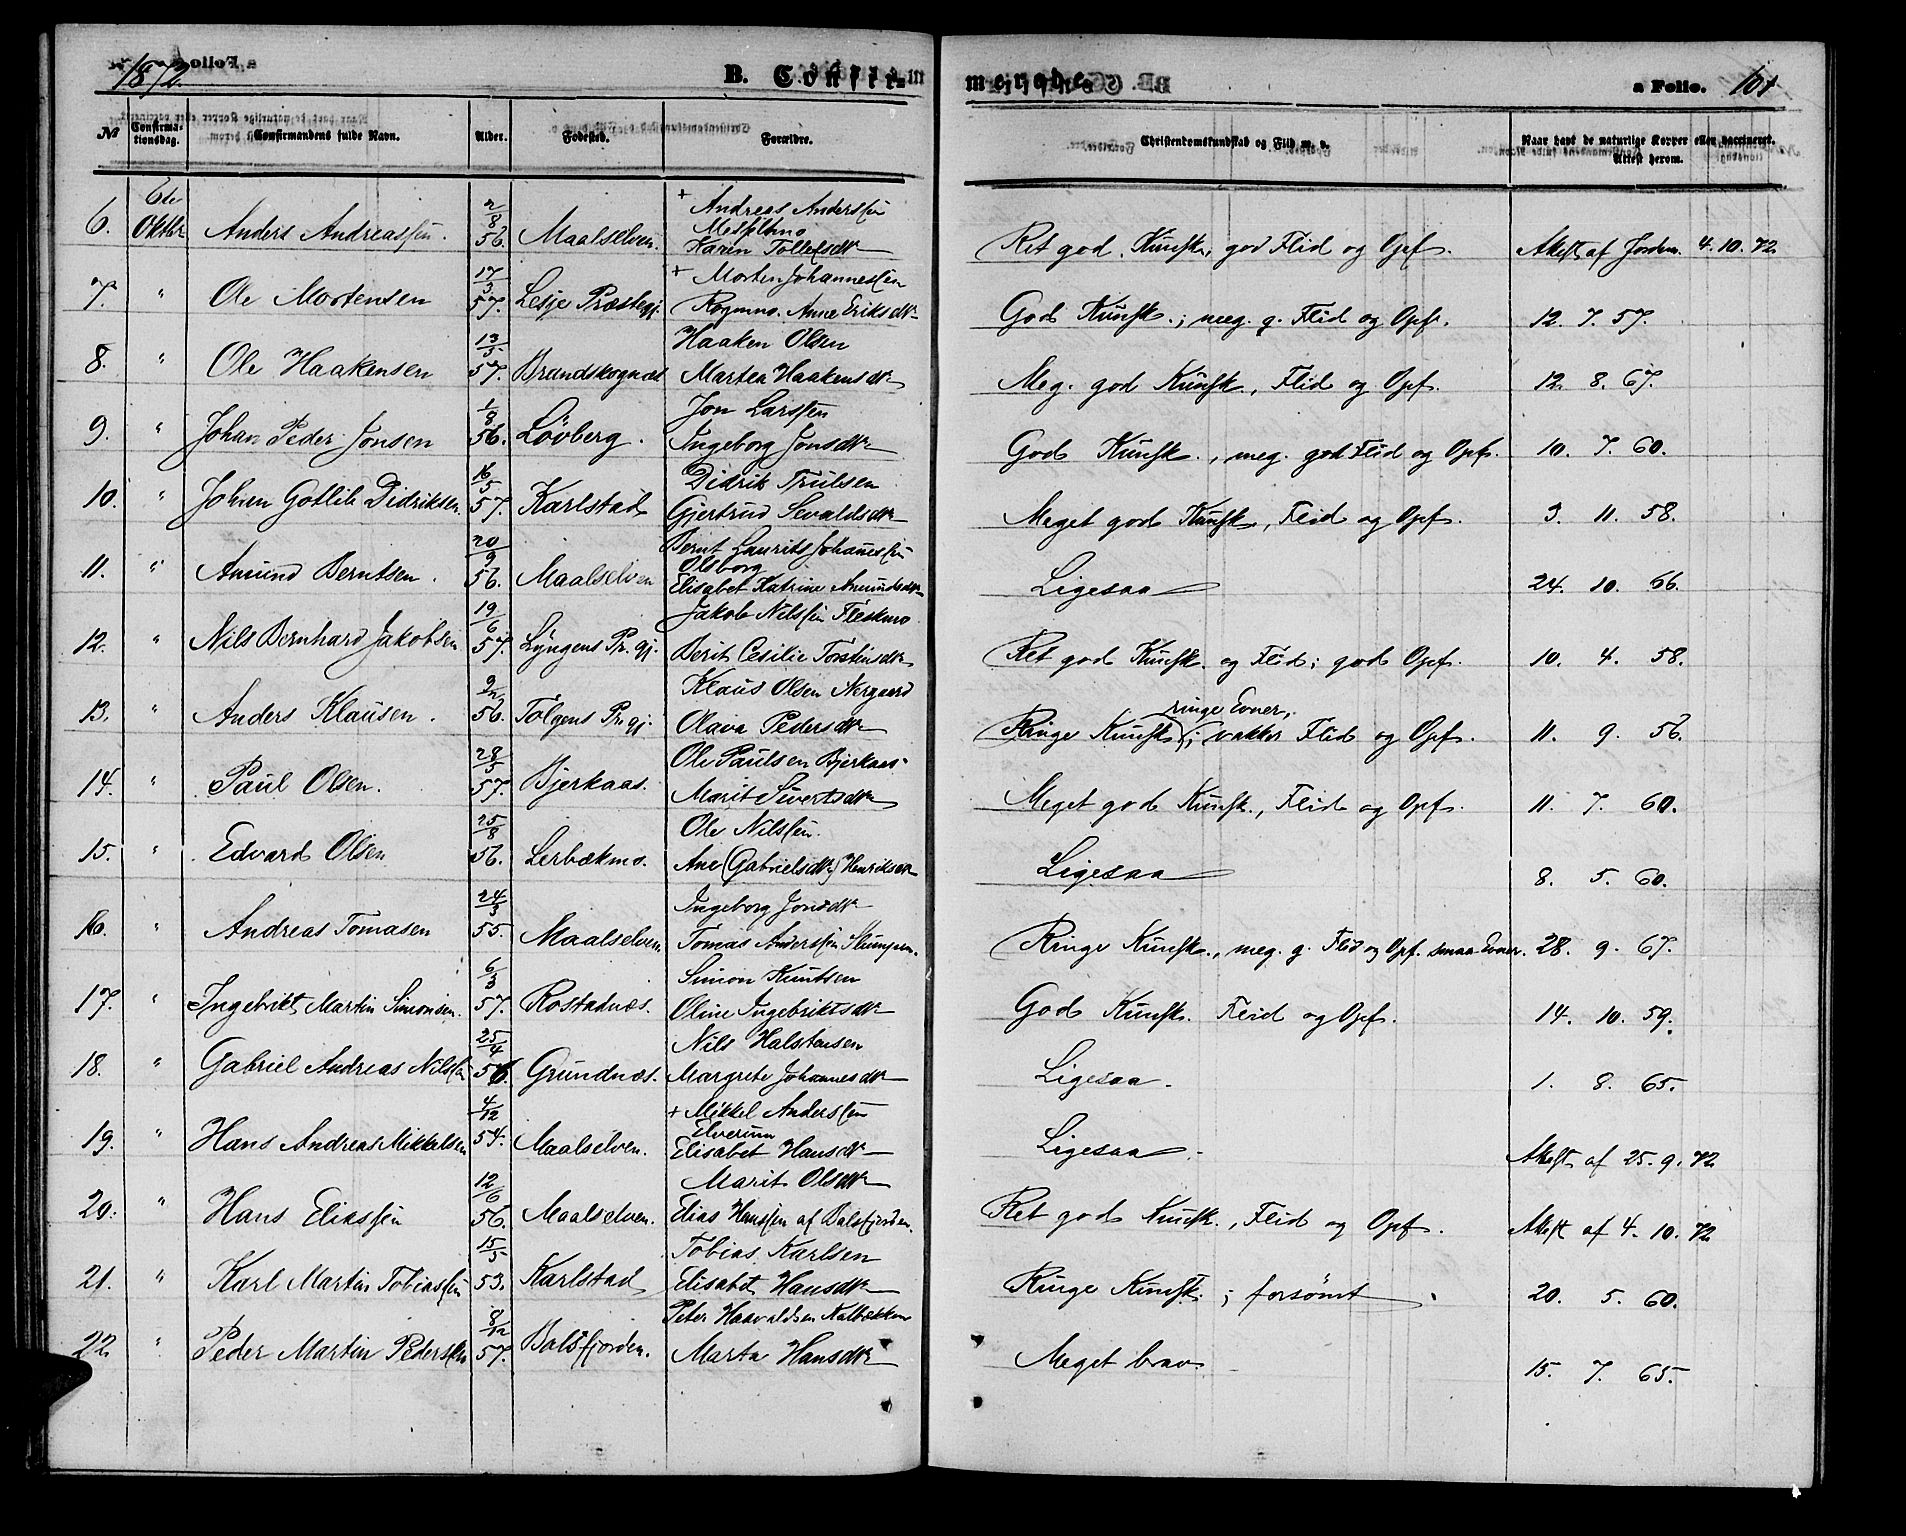 1872.
B. Confir=
merede.
a Folio. 101
№
Confirma-
tionsdag.
Confirmandens fulde Navn.
Alder.
Fødested.
Forældre.
Christendomskundskab og Flid m. v.
Naar havt de naturlige Kopper eller vaccineret.
Attest herom.
6. 6te Oktbr Anders Andreassen. 2/8 56. Maalselven. + Andreas Anderssen Karen Tollefsdtr Ret god Kunsk., god Flid og Opf. Attest af Jordem. 4. 10. 72
7. " Ole Mortensen 17/3 57. Lesje Præstegj. + Morten Johannessen Rognmo. Anne Eriksdtr God Kunsk.; meg. g. Flid og Opf. 12. 7. 57.
8. " Ole Haakensen 13/3 57. Brandskognæs Haaken Olsen Martea Haakensdtr Meg. god Kunsk., Flid og Opf. 12. 8. 67.
9. " Johan Peder Jonsen 1/8 56. Løvberg. Jon Larssen Ingeborg Jonsdtr God Kunsk., meg. god Flid og Opf. 10. 7. 60.
10. " Johan Gotlib Didriksen. 16/5 57. Karlstad Didrik Trulsen Gjertrud Sevaldsdtr Meget god Kunsk., Flid og Opf. 3. 11. 58.
11. " Amund Berntsen. 20/9 56. Maalselven Bernt Laurits Johanessen Olsborg Elisabet Katrine Amundsdtr Ligesaa 24. 10. 66.
12. " Nils Bernhard Jakobsen 19/6 57. Lyngens Pr.gj. Jakob Nilssen Fleskmo Berit Cesilie Torstinsdtr Ret god Kunsk. og Flid; god Opf. 10. 4. 58.
13. " Anders Klausen. 9/2 56. Tolgens Pr.gj. Klaus Olsen Nergaard Olava Pedersdtr Ringe Kunsk., ringe Evner, vakker Flid og Opf. 11. 9. 56.
14. " Paul Olsen. 28/5 57. Bjerkaas. Ole Paulsen Bjerkaas Marit Sivertsdtr Meget god Kunsk., Flid og Opf. 11. 7. 60.
15. " Edvard Olsen 25/8 56. Lerbækmo. Ole Nilssen. Ane (Gabrielsdtr) Henriksdtr Ligesaa 8. 5. 60.
16. " Andreas Tomasen 24/3 55. Maalselven Ingeborg Jonsdtr Tomas Anderssen Ringe Kunsk., meg. g. Flid og Opf. smaa Evner. 28. 9. 67.
17. " Ingebrikt Martin Simonsen. 6/3 57. Rostadnæs. Simon Knutsen Oline Ingebriktsdtr God Kunsk. Flid og Opf. 14. 10. 59.
18. " Gabriel Andreas Nilssen 25/4 56. Grundnæs. Nils Halstensen Margrete Johannesdtr Ligesaa. 1. 8. 65.
19. " Hans Andreas Mikkelsen 4/12 54. Maalselven. + Mikkel Anderssen Elverum Elisabet Hansdtr Ligesaa. Attest af 25. 9. 72
20. " Hans Eliassen 12/6 56. Maalselven. Marit Olsdtr Elias Hanssen af Balsfjorden. Ret god Kunsk., Flid og Opf. Attest af 4. 10. 72
21. " Karl Martin Tobiassen 15/5 53. Karlstad Tobias Karlsen Elisabet Hansdtr Ringe Kunsk.; forsømt. 20. 5. 60.
22. " Peder Martin Pederssen 8/12 57. Balsfjorden. Peter Haavaldsen Marta Hansdtr Meget brav. 15. 7. 65.